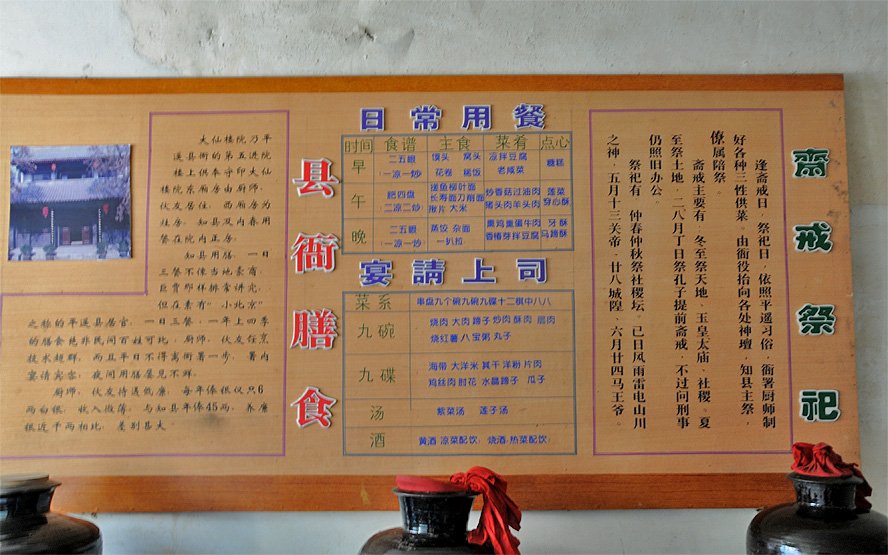 大仙楼院乃平
遥县衙的第五进院
楼上供奉守印大仙
楼院东厢房由厨师、
伙友居住，西厢房为
挂房。知县及内眷用
餐在院内正房。
知县用膳，一日
三餐不像当地豪商、
巨贾那样排常讲究。
但在素有“小北京”
之称的平遥县居官，一日三餐，一年上四季
的膳食绝非民间百姓可比，厨师、伙友任烹
技术超群，而且平日不得离衙署一步，署内
宴请宾客，夜间用膳屡见不鲜。
厨师、伙友待遇低廉，每年俸银仅只6
两白银，收入微薄，与知县年俸45两，养廉
银近千两相比，差别甚大。
县衙膳食
日常用餐
时间 食谱 主食 菜肴 点心
早 二五眼 馍头 窝头 凉拌豆腐 糖糕
一凉一炒 花卷 稀饭 老咸菜
午 肥四盘 搓鱼柳叶面 炒香菇过油肉 莲菜
二凉二炒 长寿面刀削面 猪头肉羊头肉 穿心酥
揪片 大米
晚 二五眼 蒸饺 杂面 熏鸡肉蛋牛肉 牙酥
一凉一炒 一扒拉 香椿芽拌豆腐 马蹄酥
宴請上司
菜系 串盘九个碗九碗九碟十二棋中八八
九碗 烧肉 大肉 蹄子 炒肉 酥肉 扁肉
烧红薯 八宝粥 丸子
九碟 海带 大洋米 其干 洋粉 片肉
鸡丝肉 肘花 水晶蹄子 瓜子
汤 紫菜汤 莲子汤
酒 黄酒（凉菜配饮） 烧酒（热菜配饮）
斋戒祭祀
逢斋戒日，祭祀日，依照平遥习俗，衙署厨师制
好各种三性供菜。由衙役抬向各处神壇，知县主祭，
僚属陪祭。
斋戒主要有，冬至祭天地、玉皇太庙、社稷。夏
至祭土地，二八月丁日祭孔子提前斋戒，不过问刑事
仍照旧办公。
祭祀有 仲春仲秋祭社稷坛，己日风雨雷电山川
之神，五月十三关帝，廿八城隍，六月廿四马王爷。